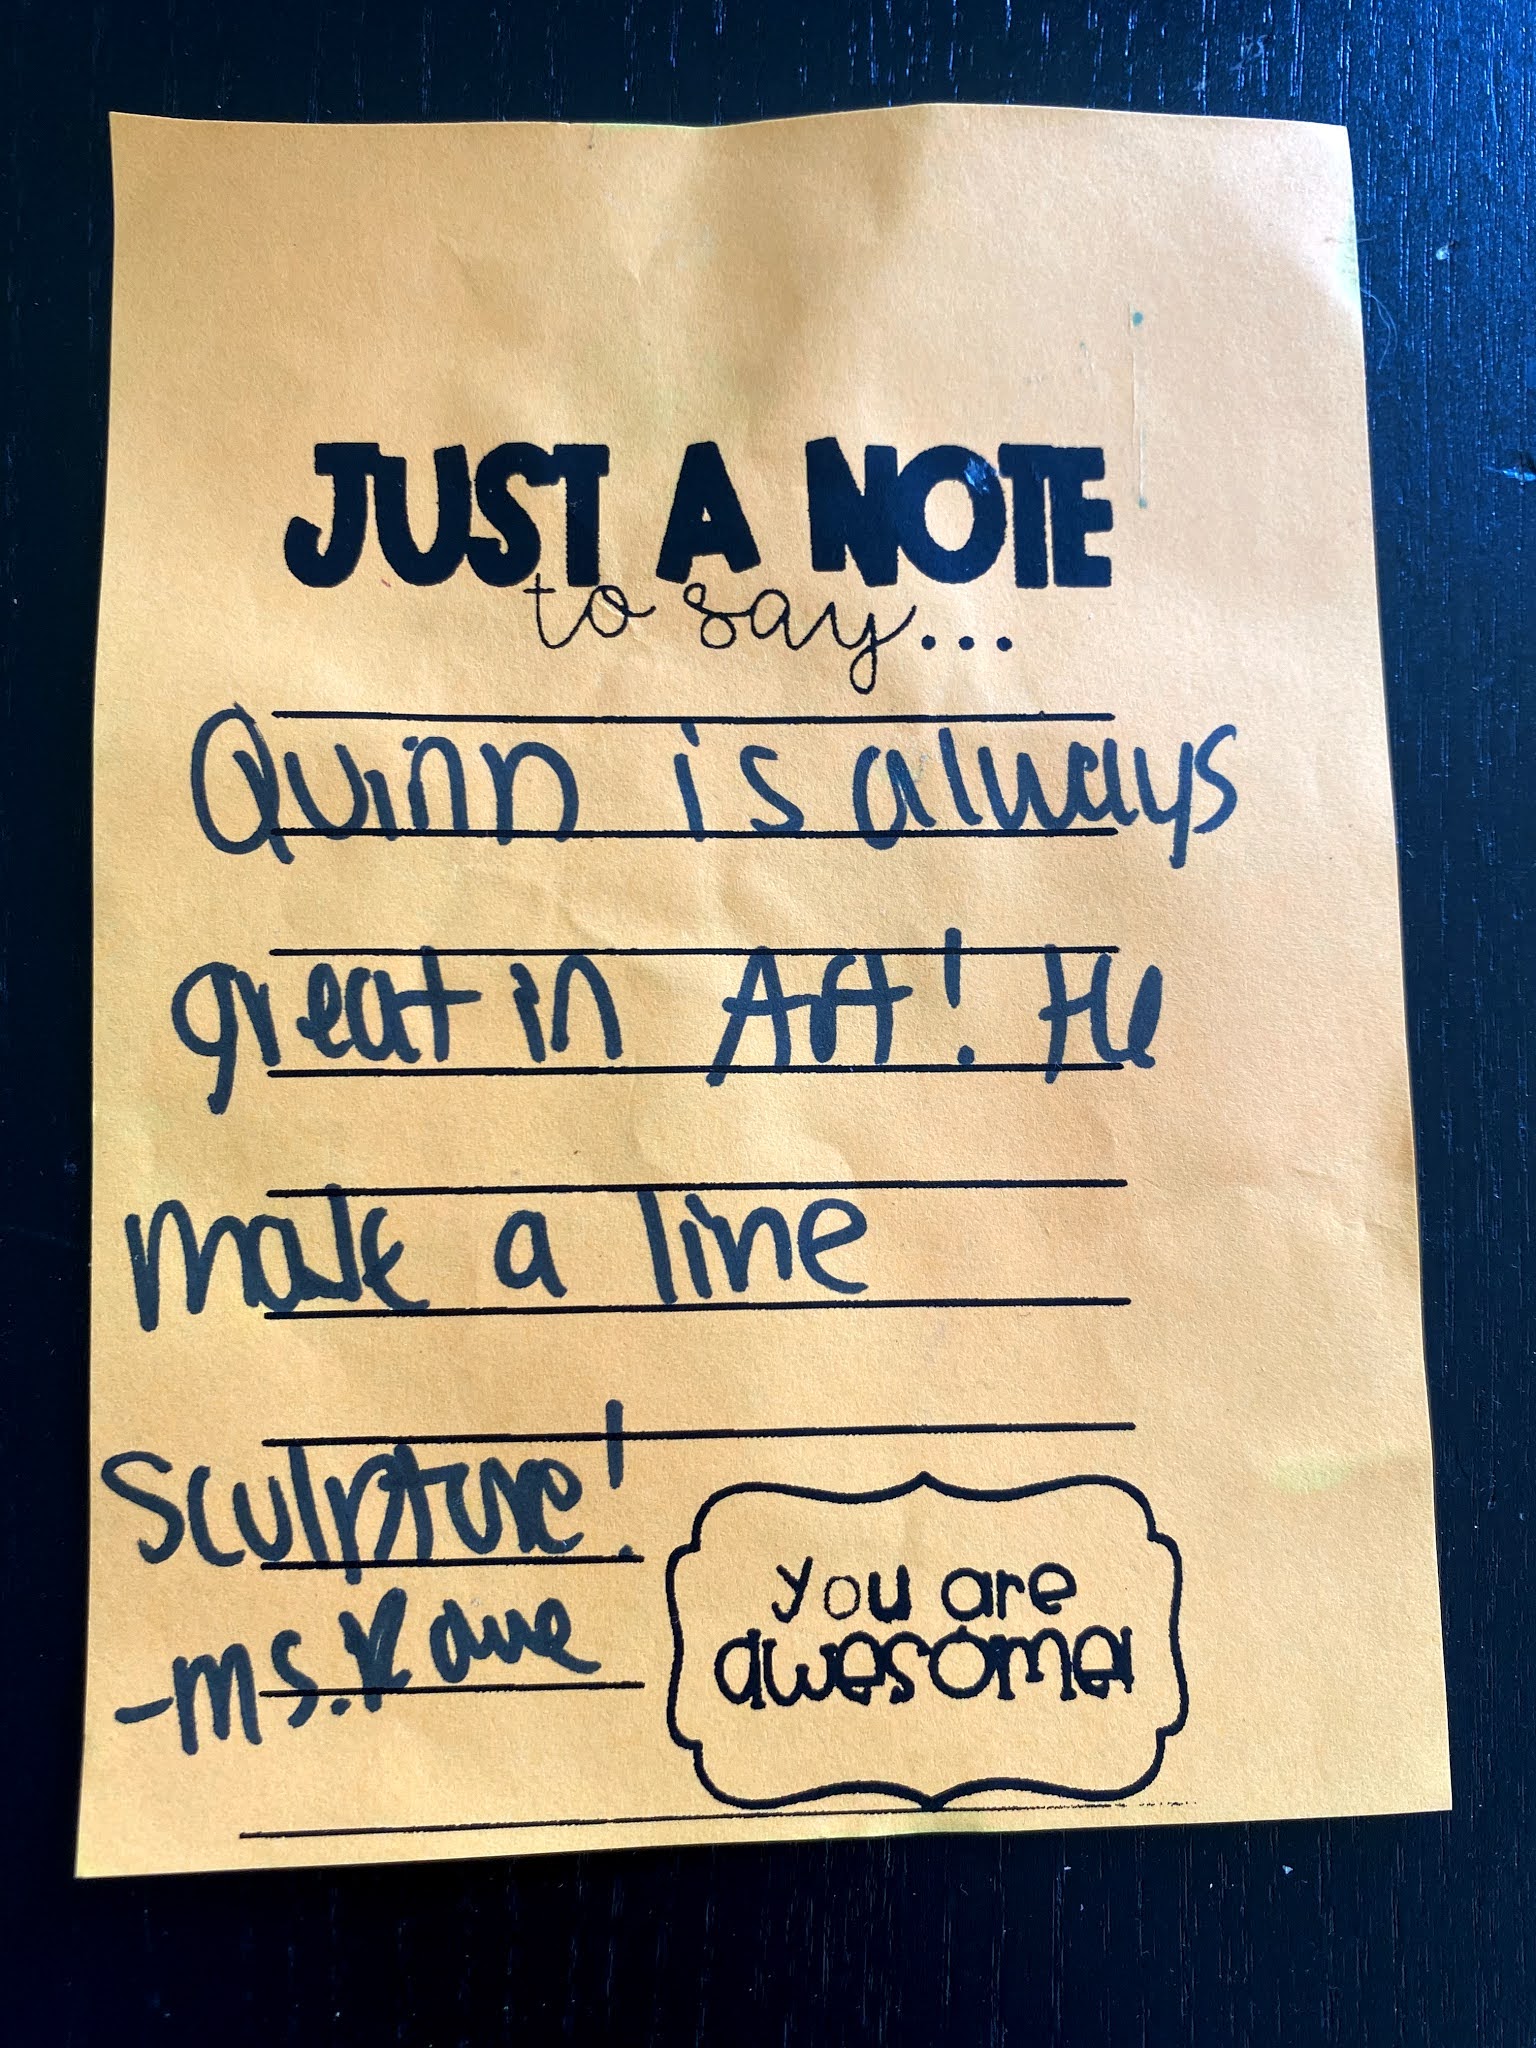 JUST A NOTE
to say...
Quinn is always
great in Art! He
make a line
Sculpture!
-Ms.
you are
awesome!